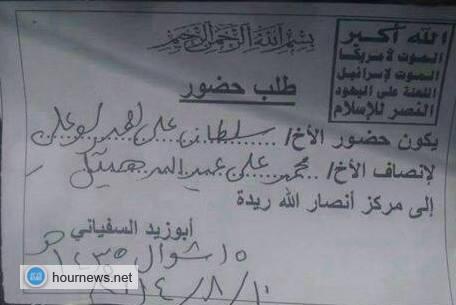 بسم الله الرحمن الرحيم
الله أكبر
الموت لأمريكا
الموت لإسرائيل
اللعنة على اليهود
النصر للإسلام
طلب حضور
يكون حضور الأخ/ سلطان علي
لإنصاف الأخ/ محمد علي عمير
إلى مركز أنصار الله ريدة
أبوزيد السفياني
١٥ شوال ١٤٣٥ هـ
٢٠١٤/٨/١٠
hournews.net